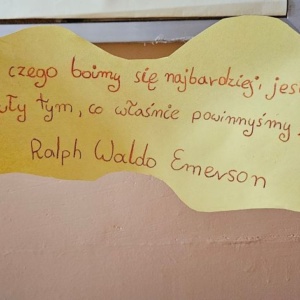 czego boimy się najbardziej, jest
tym, co właśnie powinnyśmy
Ralph Waldo Emerson